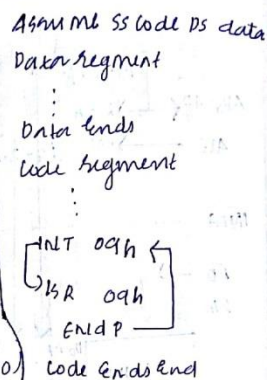 Assume SS Code DS data
Data segment
⋮
Data Ends
Code segment
⋮
INT 09h
ISR 09h
ENDP
0) Code Ends End